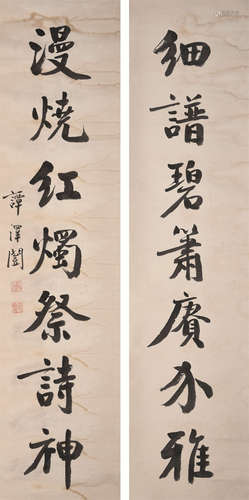 細譜碧簫賡小雅
漫燒紅燭祭詩神
譚澤闓